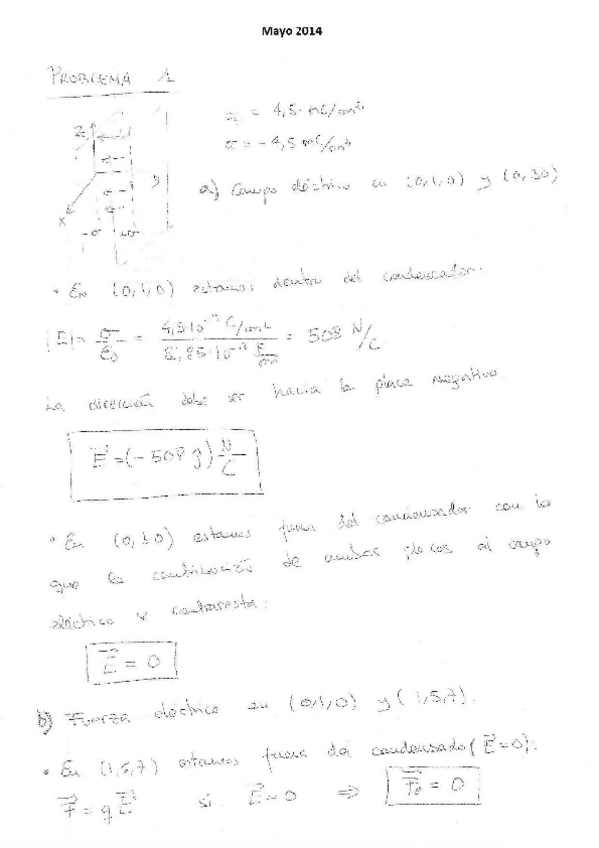 Mayo 2014
PROBLEMA 1
σ = 4,5 nC/m²
σ = -4,5 nC/m²
Z
a) Campo eléctrico en (0,1,0) y (0,3,0)
X
-σ +σ
• En (0,1,0) estamos dentro del condensador.
|E| = σ/ε₀ = 4,5·10⁻⁹ C/m² / 8,85·10⁻¹² F/m = 508 N/C
La dirección debe ser hacia la placa negativa
E⃗ = (-508 j) N/C
• En (0,3,0) estamos fuera del condensador con lo
que la contribución de ambas placas al campo
eléctrico se contrarresta:
E⃗ = 0
b) Fuerza eléctrica en (0,1,0) y (1,5,7).
• En (1,5,7) estamos fuera del condensado (E⃗=0):
F⃗ = q E⃗ si E⃗=0 ⇒ F⃗e = 0